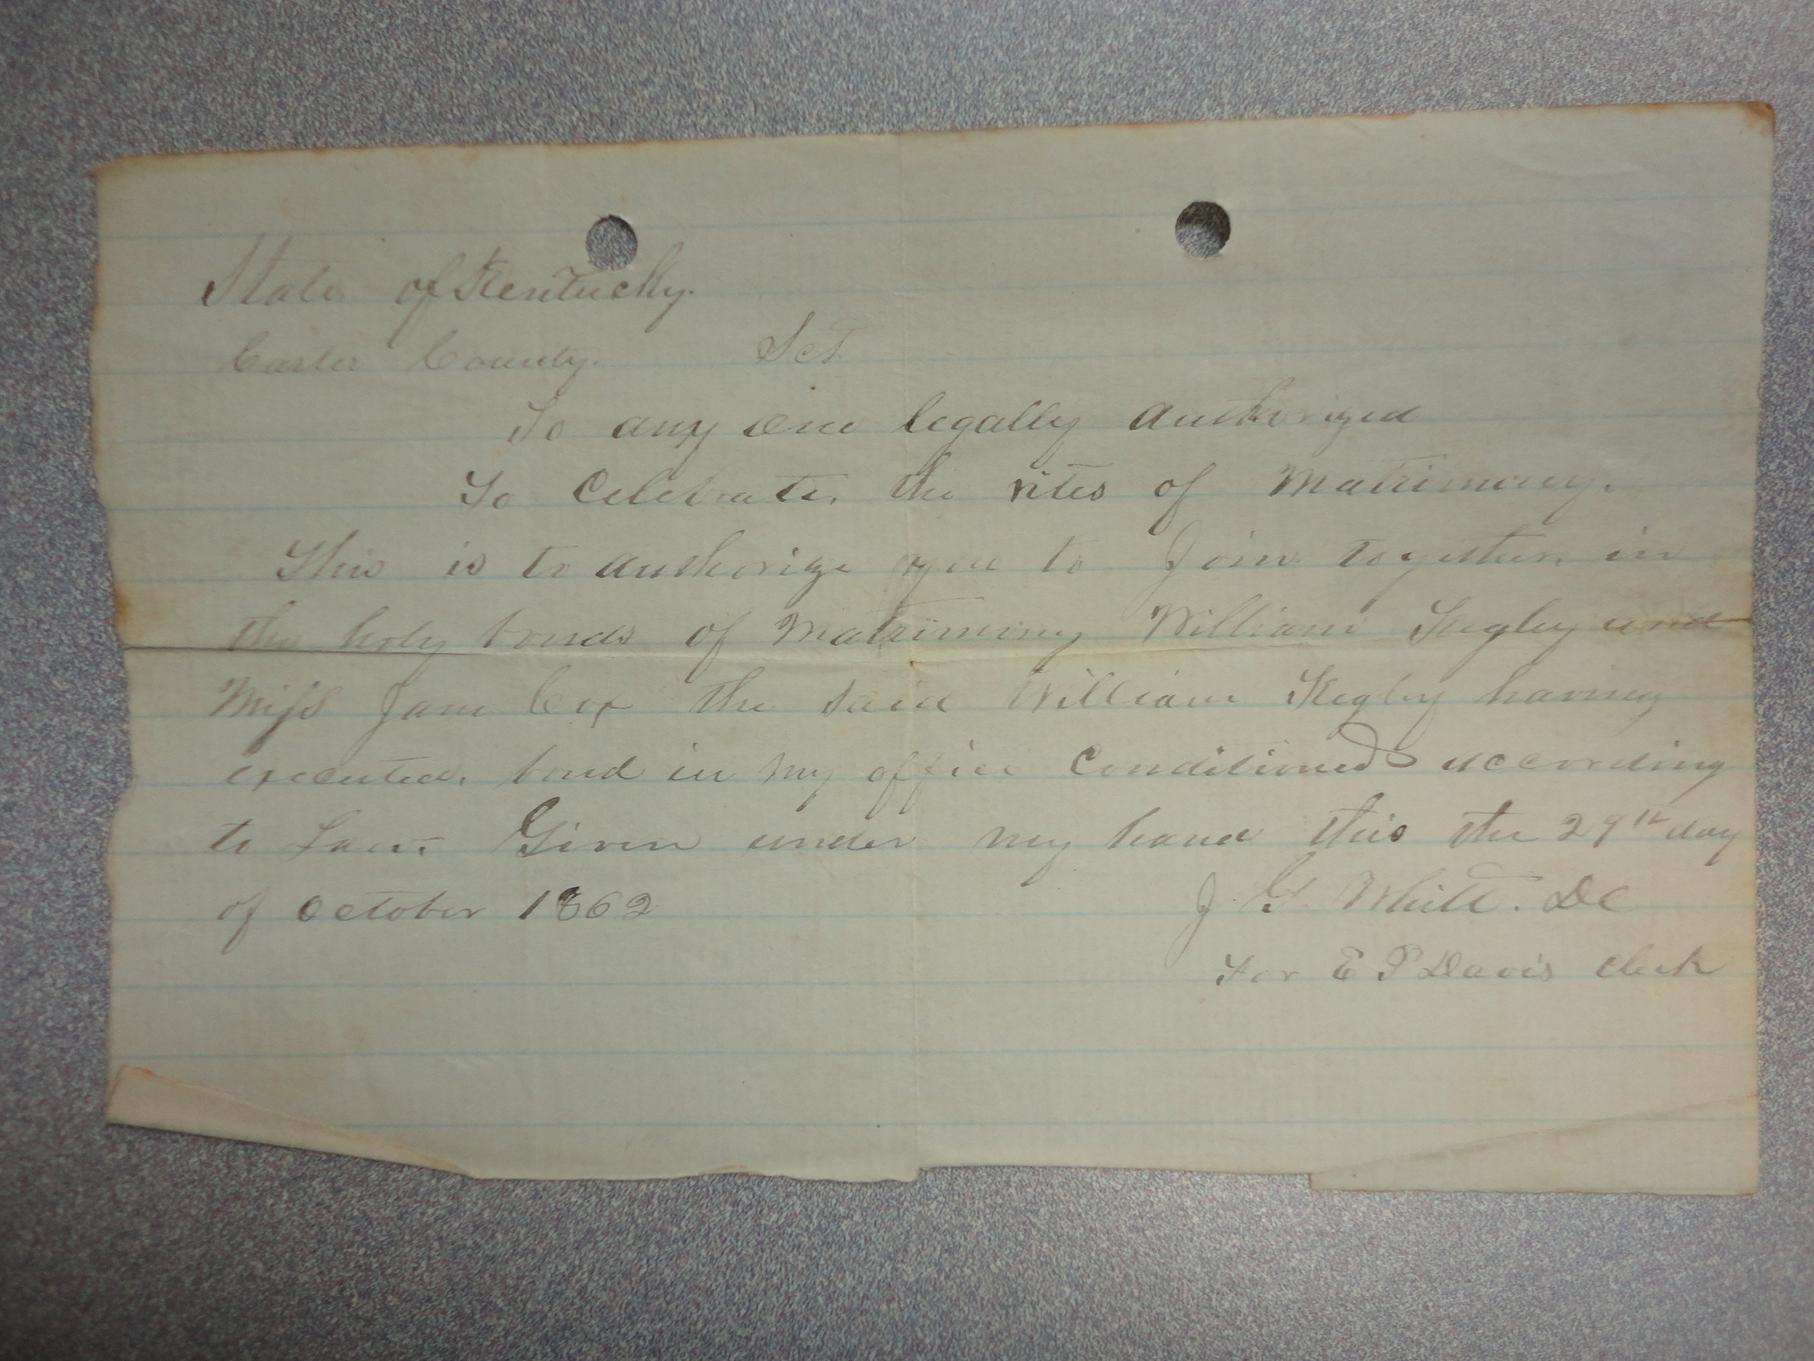 State of Kentucky.
Carter County. Sct
To any one legally authorized
To Celebrate the rites of Matrimony.
This is to authorize you to Join together in
the holy bonds of Matrimony William Kegley and
Miss Jane Cox the said William Kegley having
executed bond in my office Conditioned according
to Law. Given under my hand this the 29th day
of October 1862
J. G. Whitt. DC
For E P Davis Clerk